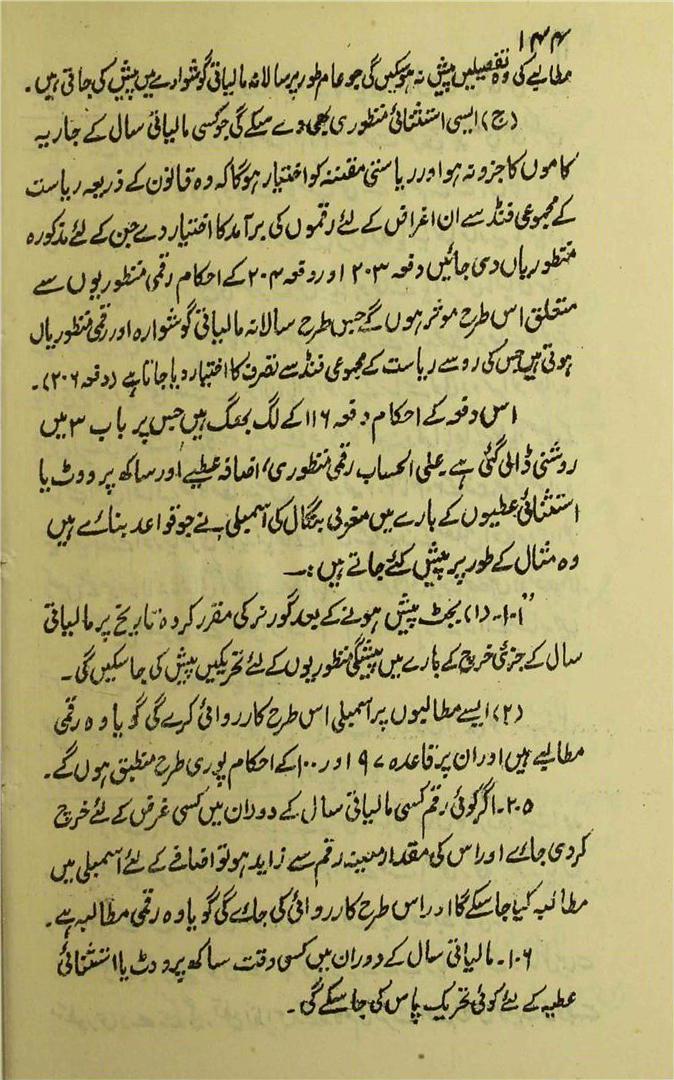 ۱۴۴
مطالبے کی وہ تفصیلیں پیش نہ ہوسکیں گی جو عام طور پر سالانہ مالیاتی گوشوارے میں پیش کی جاتی ہیں۔
(ج) ایسی استثنائی منظوری بھی دے سکے گی جو کسی مالیاتی سال کے جاریہ
کاموں کا جزو نہ ہو اور ریاستی مقننہ کو اختیار ہوگا کہ وہ قانون کے ذریعہ ریاست
کے مجموعی فنڈ سے ان اغراض کے لئے رقموں کی برآمد کا اختیار دے جن کے لئے مذکورہ
منظوریاں دی جائیں دفعہ ۲۰۳ اور دفعہ ۲۰۴ کے احکام رقمی منظوریوں سے
متعلق اس طرح موثر ہوں گے جس طرح سالانہ مالیاتی گوشوارہ اور رقمی منظوریاں
ہوتی ہیں جس کی رو سے ریاست کے مجموعی فنڈ سے تصرف کا اختیار دیا جاتا ہے (دفعہ ۲۰۶)۔
اس دفعہ کے احکام دفعہ ۱۱۶ کے لگ بھگ ہیں جس پر باب ۳ میں
روشنی ڈالی گئی ہے۔ علی الحساب رقمی منظوری، اضافہ عطیے اور ساکھ پر ووٹ یا
استثنائی عطیوں کے بارے میں مغربی بنگال کی اسمبلی نے جو قواعد بنائے ہیں
وہ مثال کے طور پر پیش کئے جاتے ہیں:۔
"۱۰۱۔ (۱) بجٹ پیش ہونے کے بعد گورنر کی مقرر کردہ تاریخ پر مالیاتی
سال کے جزئی خرچ کے بارے میں پیشگی منظوریوں کے لئے تحریکیں پیش کی جاسکیں گی۔
(۲) ایسے مطالبوں پر اسمبلی اس طرح کارروائی کرے گی گویا وہ رقمی
مطالبے ہیں اور ان پر قاعدہ ۹۷ اور ۱۰۰ کے احکام پوری طرح منطبق ہوں گے۔
۲۰۵۔ اگر کوئی رقم کسی مالیاتی سال کے دوران میں کسی غرض کے لئے خرچ
کردی جائے اور اس کی مقدار معینہ رقم سے زاید ہو تو اضافے کے لئے اسمبلی میں
مطالبہ کیا جاسکے گا اور اس طرح کارروائی کی جائے گی گویا وہ رقمی مطالبہ ہے۔
۱۰۶۔ مالیاتی سال کے دوران میں کسی وقت ساکھ پر ووٹ یا استثنائی
عطیہ کے لئے کوئی تحریک پاس کی جاسکے گی۔